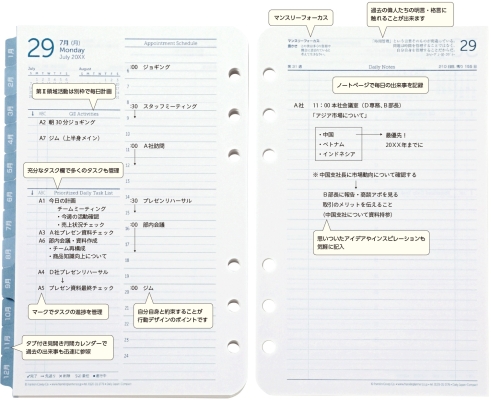 マンスリーフォーカス
過去の偉人たちの明言・格言に
触れることが出来ます
29
7月 (月)
Monday
July 20XX
July
August
Appointment Schedule
マンスリーフォーカス
29
第Ⅱ領域活動は別枠で毎日計画
QII Activities
A2 朝30分ジョギング
A7 ジム(上半身メイン)
充分なタスク欄で多くのタスクも管理
Prioritized Daily Task List
A1 今日の計画
チームミーティング
・今週の活動確認
・売上状況チェック
A3 A社プレゼン資料チェック
A6 部内会議・資料作成
・チーム再構成
・商品知識向上について
A4 D社プレゼンリハーサル
A5 プレゼン資料最終チェック
マークでタスクの進捗を管理
タブ付き見開き月間カレンダーで
過去の出来事も迅速に参照
:00 ジョギング
:30 スタッフミーティング
:00 A社訪問
:30 プレゼンリハーサル
:00 部内会議
:00 ジム
自分自身と約束することが
行動デザインのポイントです
Daily Notes
ノートページで毎日の出来事を記録
A社 11:00本社会議室(D専務、B部長)
「アジア市場について」
・中国
・ベトナム
・インドネシア
最優先!
20XX年までに
※ 中国支社長に市場動向について確認する
B部長に報告・商談アポを見る
取引のメリットを伝えること
(中国支社について資料持参)
思いついたアイデアやインスピレーションも
気軽に記入
1月
2月
3月
4月
5月
6月
7月
8月
9月
10月
11月
12月